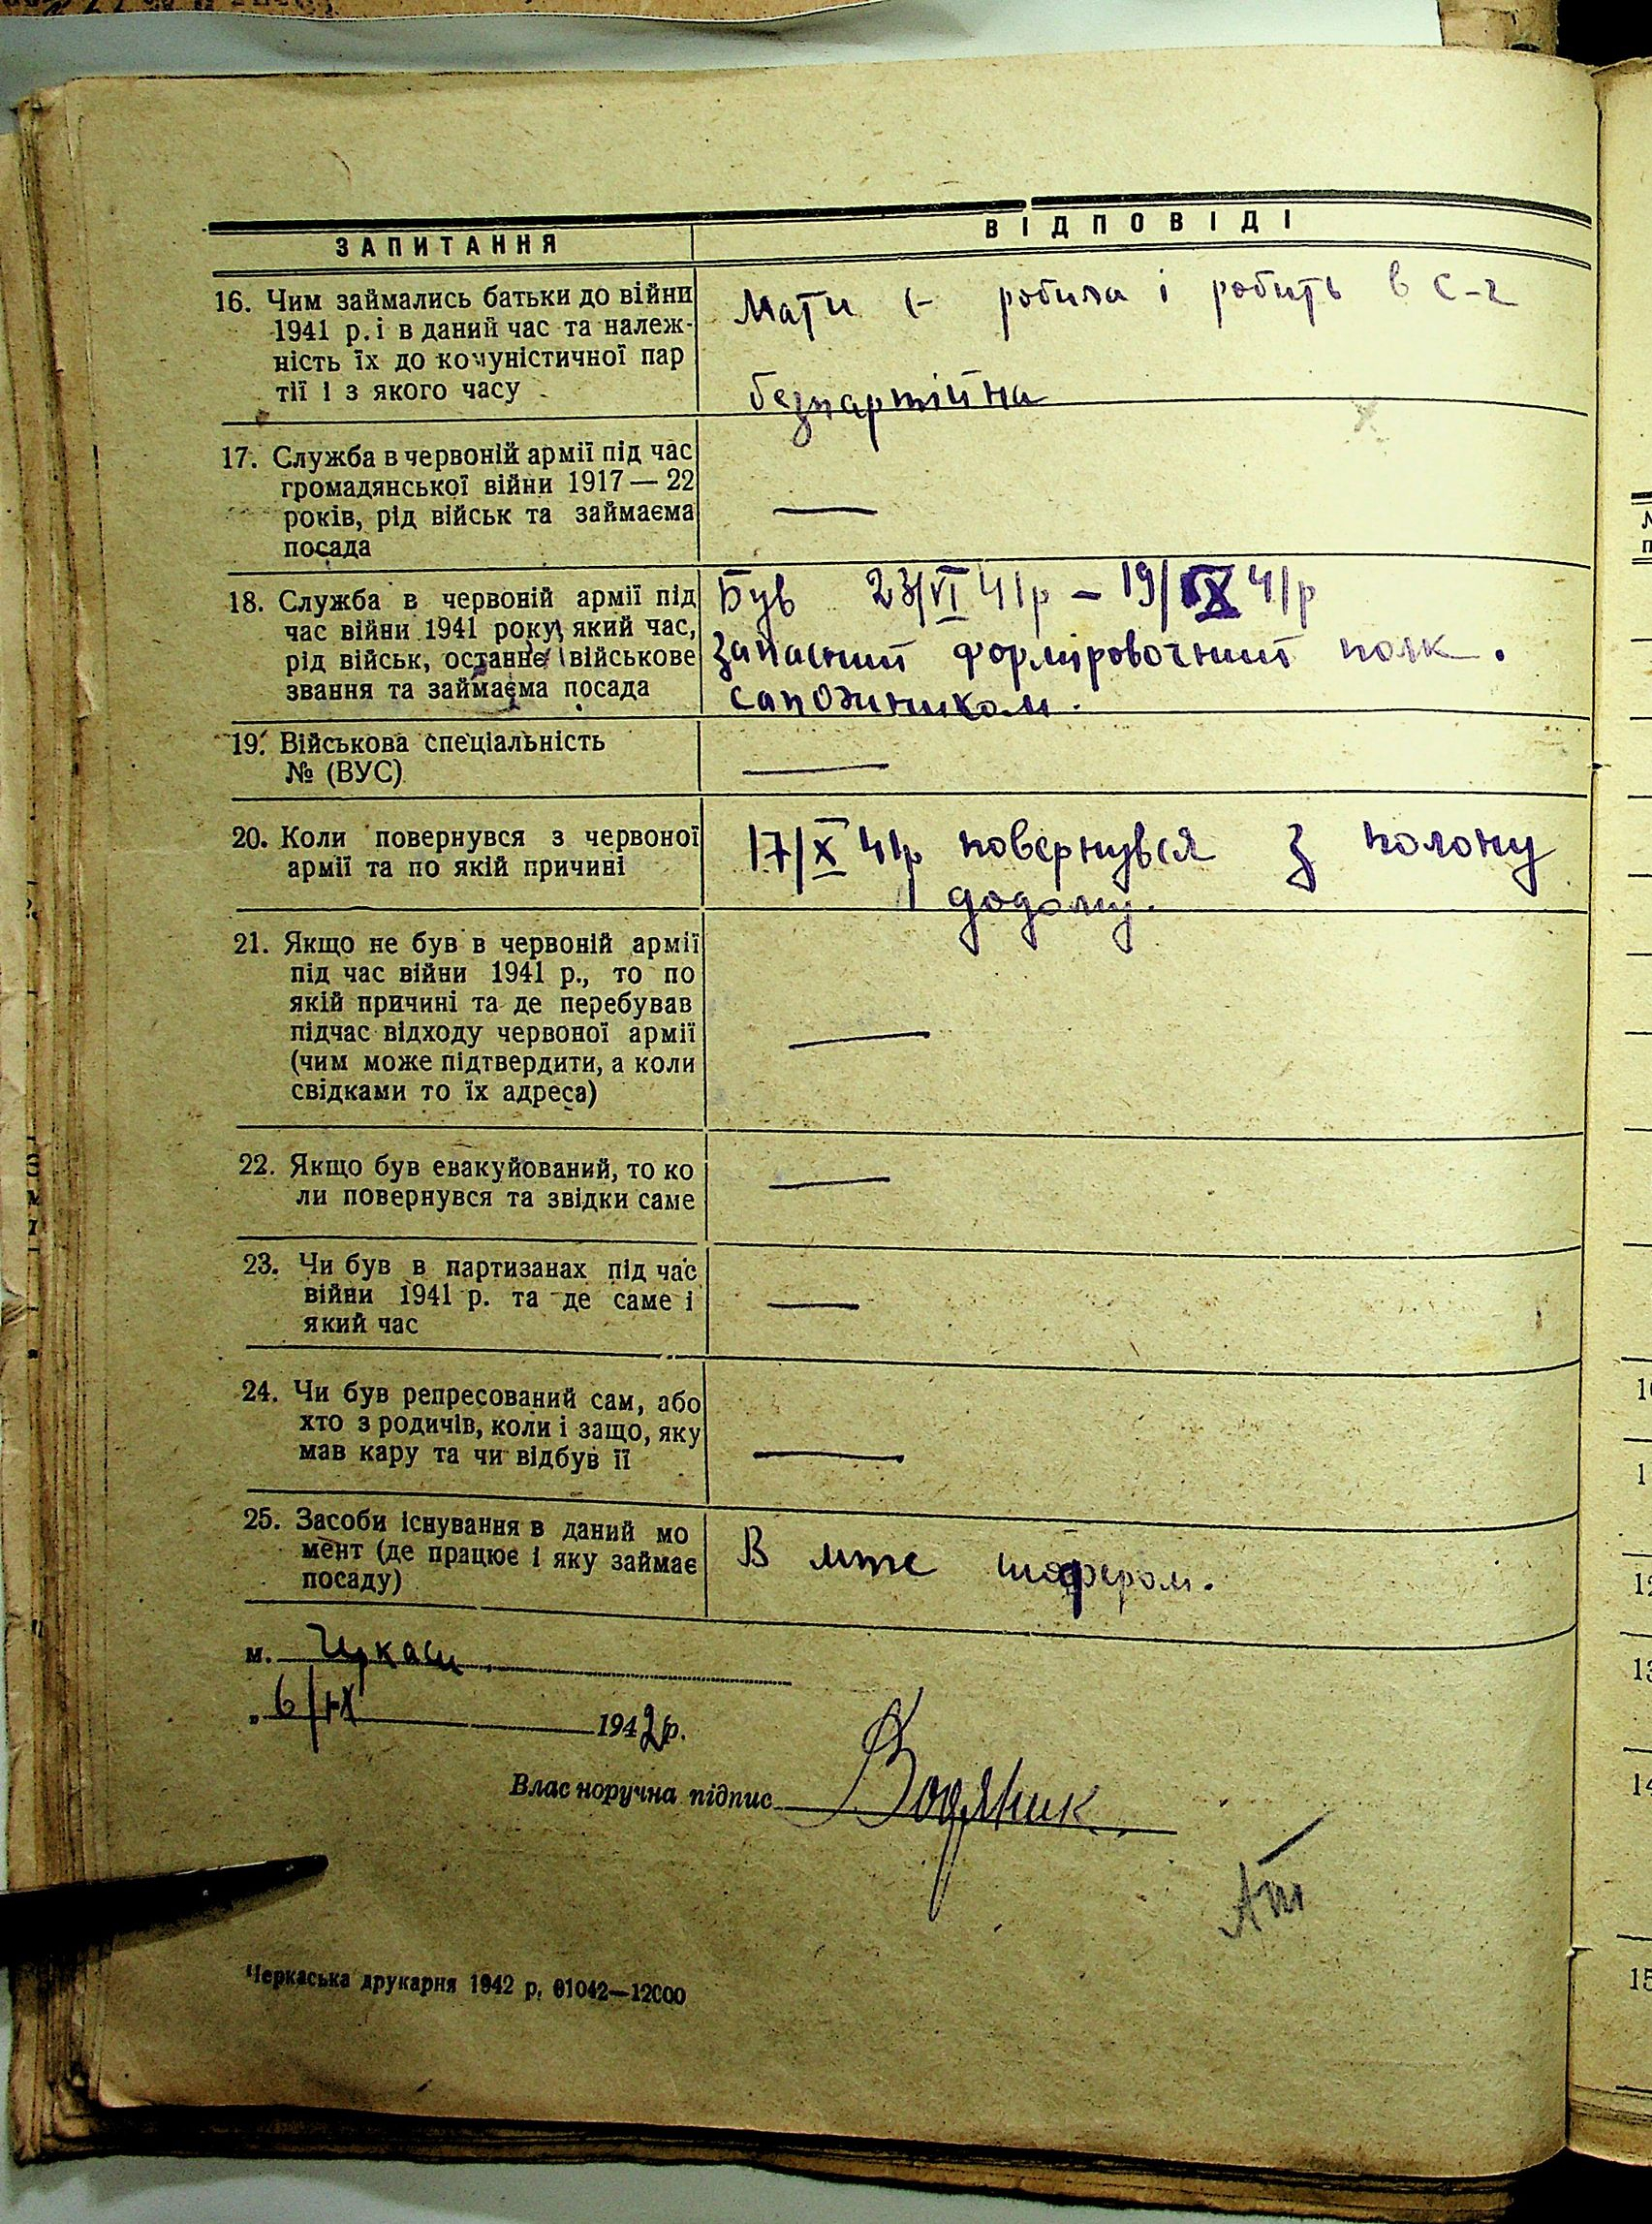 ЗАПИТАННЯ
ВІДПОВІДІ
16. Чим займались батьки до війни
1941 р. і в даний час та належ-
ність їх до комуністичної пар
тії і з якого часу
Мати – робила і робить в с-г
безпартійна
17. Служба в червоній армії під час
громадянської війни 1917 — 22
років, рід військ та займаєма
посада
—
18. Служба в червоній армії під
час війни 1941 року, який час,
рід військ, останнє військове
звання та займаєма посада
Був 23/VI 41р – 19/IX 41р
запасний формировочний полк.
сапожником.
19. Військова спеціальність
№ (ВУС)
—
20. Коли повернувся з червоної
армії та по якій причині
17/X 41р повернувся з полону
додому.
21. Якщо не був в червоній армії
під час війни 1941 р., то по
якій причині та де перебував
підчас відходу червоної армії
(чим може підтвердити, а коли
свідками то їх адреса)
—
22. Якщо був евакуйований, то ко
ли повернувся та звідки саме
—
23. Чи був в партизанах під час
війни 1941 р. та де саме і
який час
—
24. Чи був репресований сам, або
хто з родичів, коли і защо, яку
мав кару та чи відбув її
—
25. Засоби існування в даний мо
мент (де працює і яку займає
посаду)
В шофером.
м.
„ 6/IX 1942р.
Власноручна підпис Водяник
Черкаська друкарня 1942 р. 01042—12000